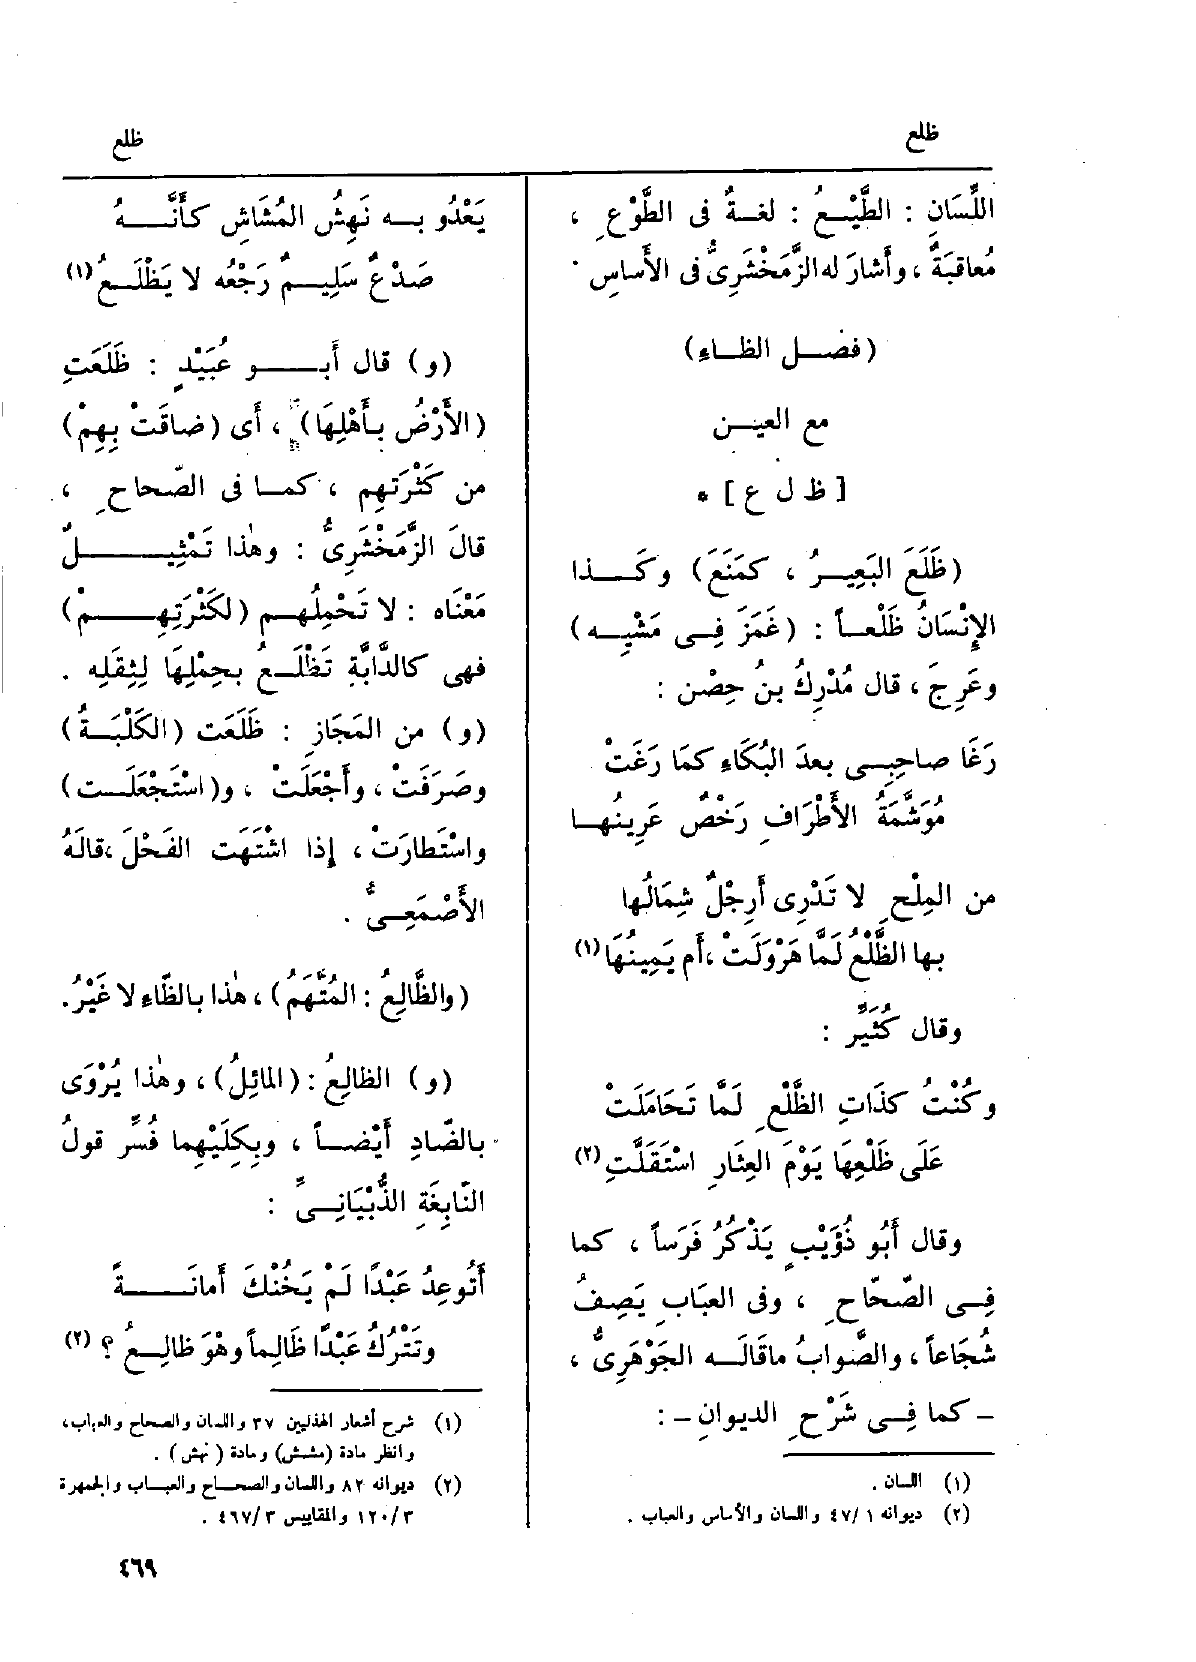 ظلع
ظلع
اللِّسَانِ : الطَّيْعُ : لغةٌ فى الطَّوْعِ ،
مُعاقبَةٌ ، وأَشارَ له الزَّمَخْشَرِىُّ فى الأَساسِ .
( فصل الظاءِ )
مع العين
[ ظ ل ع ] *
( ظَلَعَ البَعِيرُ ، كمَنَعَ ) وكَذا
الإِنْسَانُ ظَلْعاً : ( غَمَزَ فِى مَشْيِه )
وعَرِجَ ، قال مُدْرِكُ بنُ حِصْن :
رَغَا صاحِبِى بعدَ البُكَاءِ كمَا رَغَتْ
مُوَشَّمَةُ الأَطْرَافِ رَخْصٌ عَرِينُها
من المِلْحِ لا تَدْرِى أَرِجْلُ شِمَالُها
بها الظَّلْعُ لَمَّا هَرْوَلَتْ ،أَم يَمِينُهَا (١)
وقال كُثَيِّرٌ :
وكُنْتُ كذَاتِ الظَّلْعِ لَمَّا تَحَامَلَتْ
عَلَى ظَلْعِهَا يَوْمَ العِثَارِ اسْتَقَلَّتِ (٢)
وقال أَبُو ذُؤَيْبٍ يَذْكُرُ فَرَساً ، كما
فِى الصّحّاحِ ، وفى العبَابِ يَصِفُ
شُجَاعاً ، والصَّوابُ ماقالَه الجَوْهَرِىُّ ،
– كما فِى شَرْحِ الديوانِ – :
(١) اللسان .
(٢) ديوانه ١ /٤٧ واللسان والأساس والعباب .
يَعْدُو بِه نَهِشُ المُشَاشِ كأَنَّهُ
صَدْعٌ سَلِيمٌ رَجْعُه لا يَظْلَعُ (١)
(و) قال أَبو عُبَيْدٍ : ظَلَعَتِ
( الأَرْضُ بأَهْلِهَا ) ، أَى ( ضاقَتْ بِهِمْ )
من كَثْرَتِهِم ، كما فى الصّحاحِ ،
قالَ الزَّمَخْشَرِىُّ : وهٰذا تَمْثِيلٌ
مَعْنَاه : لا تَحْمِلُهم ( لكَثْرَتِهِمْ )
فهى كالدَّابَّةِ تَظْلَعُ بحِمْلِهَا لِثِقَلِه .
(و) من المَجَازِ : ظَلَعَت ( الكَلْبَةُ )
وصَرَفَتْ ، وأَجْعَلَتْ ، و( اسْتَجْعَلَت )
واسْتَطارَتْ ، إِذا اشْتَهَت الفَحْلَ ،قالَهُ
الأَصْمَعِىُّ .
( والظَّالِعُ : المُتَّهَمُ ) ، هٰذا بالظّاءِ لا غَيْرُ .
(و) الظالِعُ : ( المائِلُ ) ، وهٰذا يُرْوَى
بالضّادِ أَيْضاً ، وبِكِلَيْهِما فُسِّر قولُ
النّابِغَةِ الذُّبْيَانِىِّ :
أَتُوعِدُ عَبْدًا لَمْ يَخُنْكَ أَمانَةً
وتَتْرُكُ عَبْدًا ظَالِماً وهْوَ ظالِعُ ؟ (٢)
(١) شرح أشعار الهذليين ٣٧ واللسان والصحاح والعباب ،
وانظر مادة ( مشش ) ومادة ( نهش ) .
(٢) ديوانه ٨٢ واللسان والصحاح والعباب والجمهرة
٣ /١٢٠ والمقاييس ٣ /٤٦٧ .
٤٦٩